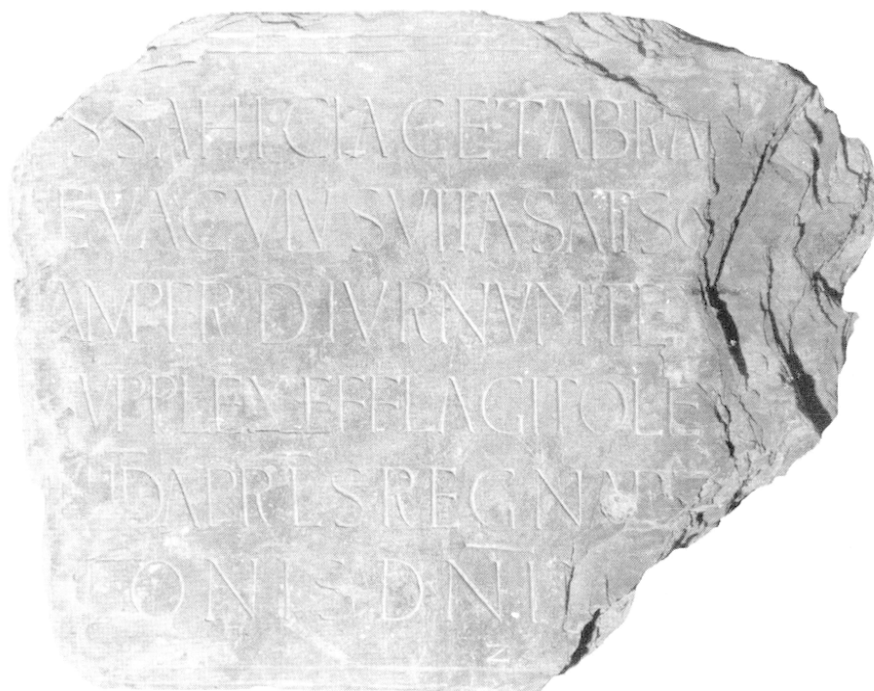 SSAHICIACETABRA
EVACVIVSVITASATISQ
AMPERDIVRNVMTE
VPPLEXEFFLAGITOLE
ID APRLSREGNAD
IONISDNI